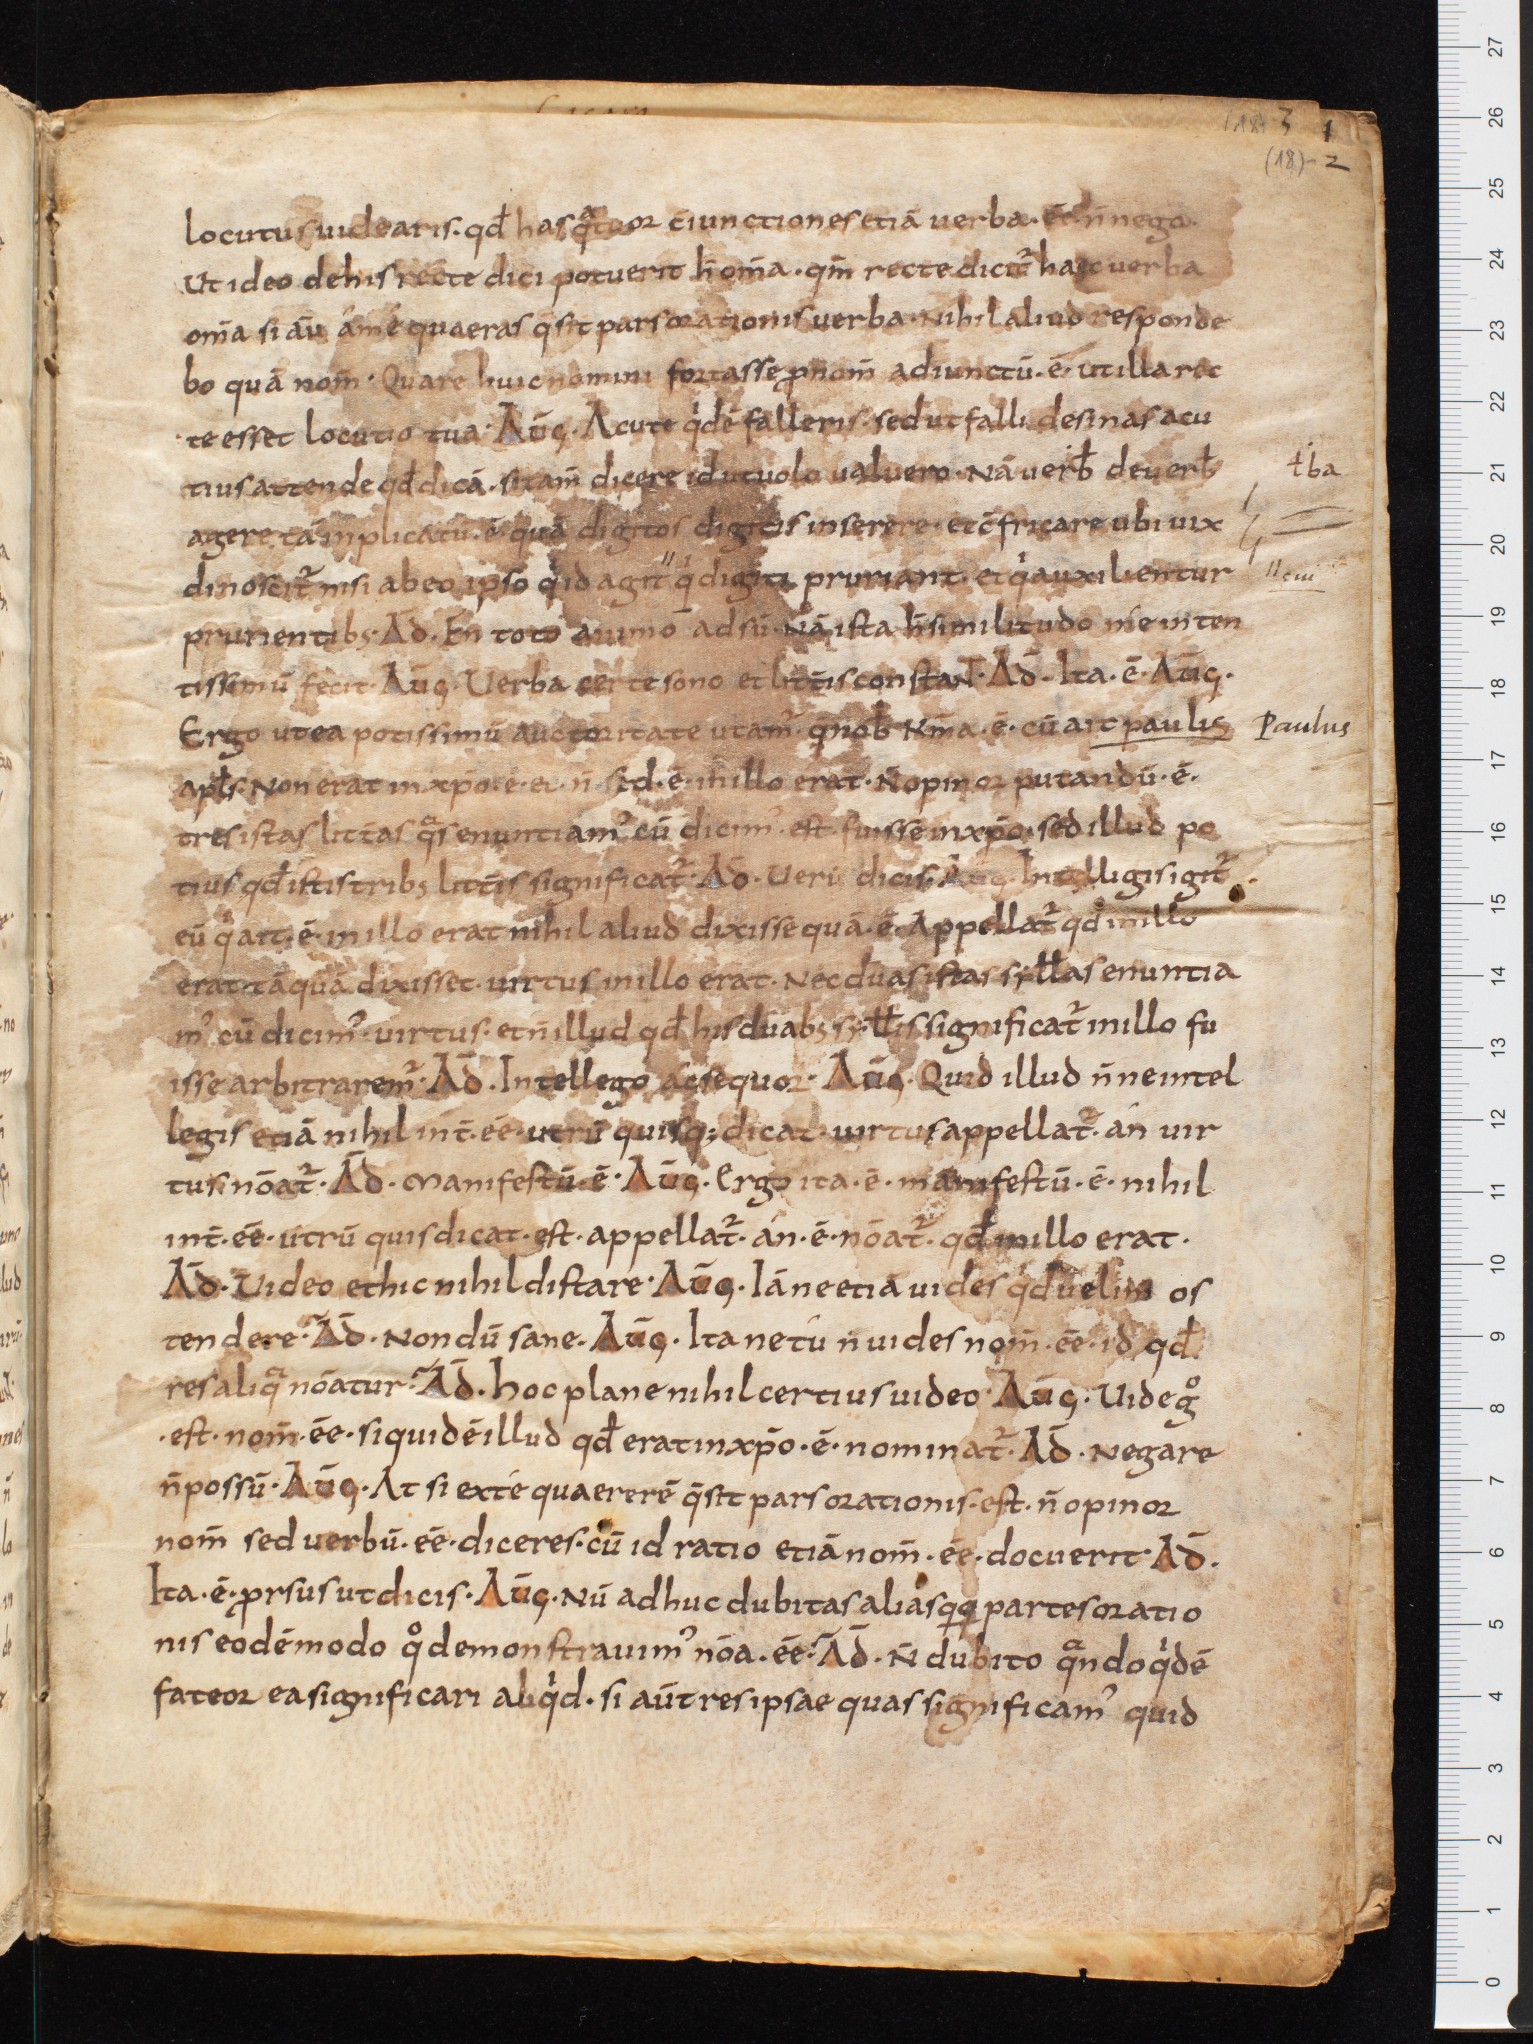 (18) 3 1
(18)-2
locutus uidearis· qđ has qͣtuor c̄iunctiones etiā verba· ēē· n̄ nego·
Ut ideo de his recte dici potuerit h̄ om̄a· qm̄ recte dicit᷑ haec verba
om̄a si aū á me quaeras q̄ sit pars orationis verba· Nihil aliud responde
bo quā nom̄· Quare huic nomini fortasse ꝓnom̄ adiunctū· ē· ut illa rec
te esset locutio tua· Aūg· Acute qͥdē falleris· sed ut falli desinas acu
tius attende qđ dicā· si tam̄ dicere id ut uolo ualuero· Nā uerƀ de uerƀ
agere tā inplicatū· ē· quā digitos digitis inserere· et c̄fricare ubi uix
dinoscit᷑ nisi ab eo ipso qͥ id agit" qͥ digiti pruriant· et qͥ auxilientur
prurientibꝫ· Ad̄· En toto animo adsū· Nā ista h̄ similitudo me inten
tissimū fecit· Aūg· Uerba certe sono et litt̄is constant· Ad̄· Ita· ē· Aūg·
Ergo ut ea potissimū auctoritate utam᷑ q̄ nob̄ Km̄a· ē· cū ait paulis
apƚs· Non erat in xp̄o· ē· et· n̄· sed· ē· in illo erat· N̄ opinor putandū· ē·
tres istas litt̄as qͣs enuntiam᷒ cū dicim᷒· est· fuisse in xp̄o· sed illud po
tius qđ istis tribꝫ litt̄is significat᷑· Ad̄· Verū dicis· Aūg· Intellugis igit᷑
eū qͥ ait· ē· in illo erat nihil aliud dixisse quā· ē· Appellat᷑ qđ in illo
erat tāquā dixisset· uirtus in illo erat· Nec duas istas syƚƚas enuntia
m᷒ cū dicim᷒· uirtus· et n̄ illud qđ his duabꝫ syƚƚis significat᷑ in illo fu
isse arbitrarem᷑· Ad̄· Intellego ac sequor· Aūg· Quid illud n̄ne intel
legis etiā nihil int̄· ēē· utrū quisq; dicat· uirtus appellat᷑· án uir
tus nōat᷑· Ad̄· Manifestū· ē· Aūg· Ergo ita· ē· manifestū· ē· nihil
int̄· ēē· utrū quis dicat· est· appellat᷑· án· ē· nōat᷑· qđ in illo erat·
Ad̄· Uideo et hic nihil distare· Aūg· Iā ne etiā uides qͥd uelim os
tendere· Ad̄· Nondū sane· Aūg· Ita ne tú n̄ uides nom̄· ēē· id qđ
res aliqͣ nōatur· Ad̄· hoc plane nihil certius uideo· Aūg· Uide gͦ
·est· nom̄· ēē· siquidē illud qđ erat in xp̄o· ē· nominat᷑· Ad̄· Negare
n̄ possū· Aūg· At si ex té quaererē q̄ sit pars orationis· est· n̄ opinor
nom̄ sed verbū· ēē· diceres· cū id ratio etiā nom̄· ēē· docuerit· Ad̄·
Ita· ē· ꝓrsus ut dicis· Aūg· Nū adhuc dubitas aliás qq̨ partes oratio
nis eodē modo qͦ demonstrauim᷒ nōa· ēē· Ad̄· N̄ dubito qͣndo qͥdē
fateor ea significari aliqͥd· si aūt res ipsae quas significam᷒ quid
ƚba
"cui
Paulus